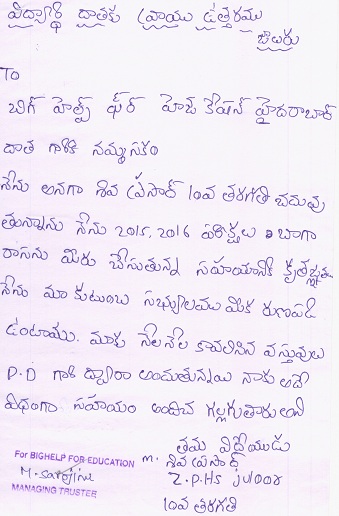 విద్యార్థి దాతకు వ్రాయు ఉత్తరము
జులురు
To
బిగ్ హెల్ప్ ఫర్ ఎడ్యుకేషన్ హైదరాబాద్
దాత గారికి నమస్కారం
నేను అనగా శివ ప్రసాద్ 10వ తరగతి చదువు
తున్నాను నేను 2015, 2016 పరిక్షలు బాగా
రాసెను మీరు చేసుతున్న సహాయానికి కృతజ్ఞత
నేను మా కుటుంబ సభ్యులము మీకు రుణపడి
ఉంటాము. మాకు నేలనేల కావలిసిన వస్తువులు
P.D గారి ద్వారా అందుతున్నయి నాకు అదే
విధంగా సహాయం అందించ గల్లగుతారు అని
తమ విధేయుడు
M. శివ ప్రసాద్
Z.P.Hs juloor
10వ తరగతి
For BIGHELP FOR EDUCATION
M. Sarojini
MANAGING TRUSTEE